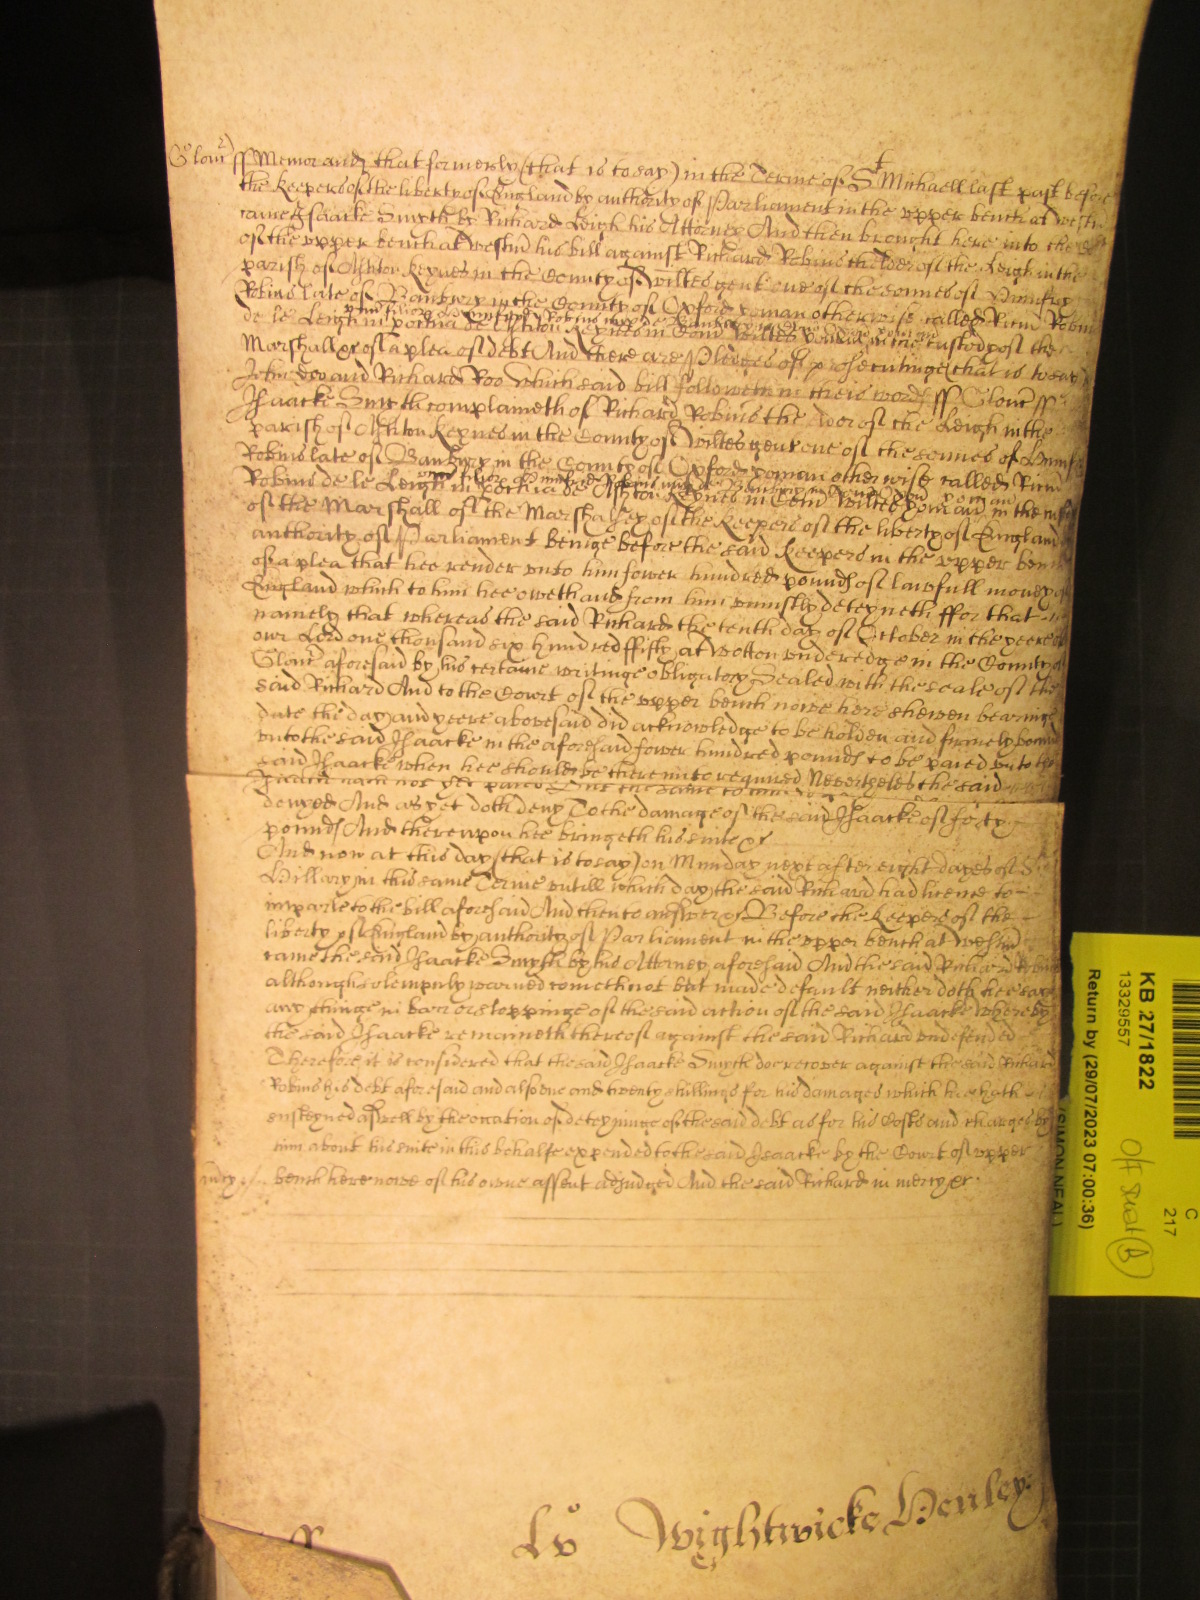 Glouc ss Memorand that formerly (that is to say) in the Terme of St Michaell last past before
the keepers of the liberty of England by authority of Parliament in the upper bench at Westm
came Isaacke Smyth by Richard Leigh his Attorney And then brought here into the
of the upper bench at westm his bill against Richard Robins the elder of the Leigh in the
parish of Ashton Keynes in the County of wiltes gent one of the sonnes of
Robins late of Banbury in the County of Oxford yoman otherwise called Ricm Robins
de le Leigh in pochia de Ashton Keynes in Com wiltes yoman in the custody of the
Marshall &c of a plea of debt And there are Pledges of prosecutinge (that is to say)
John Doo and Richard Roo which said bill followeth in theis words ss Glouc ss
Isaacke Smyth complaineth of Richard Robins the elder of the Leigh in the
parish of Ashton Keynes in the County of wiltes gent one of the sonnes of
Robins late of Banbury in the County of Oxford yoman otherwise called Ricm
Robins de le Leigh in pochia de Ashton Keynes in Com wiltes yoman in the
of the Marshall of the Marshalsey of the keepers of the liberty of England
authority of Parliament beinge before the said keepers in the upper bench
of a plea that hee render unto him fower hundred pounds of lawfull money of
England which to him hee oweth and from him uniustly deteyneth ffor that
namely that whereas the said Richard the tenth day of October in the yeere of
our Lord one thousand six hundred ffifty at wotton underedge in the County of
Glouc aforesaid by his certaine writinge obligatory Sealed with the seale of the
said Richard And to the Court of the upper bench nowe here shewen bearinge
date the day and yeere abovesaid did acknowledge to be holden and firmely bound
unto the said Isaacke in the aforesaid fower hundred pounds to be paied unto the
said Isaacke when hee should be thereunto required Neverthelesse the said
denyed And as yet doth deny To the damage of the said Isaacke of forty
pounds And thereupon hee bringeth his suite &c
And now at this day (that is to say) on Munday next after eight dayes of St
Hillary in this same Terme untill which day the said Richard had licence to
imparle to the bill aforesaid And then to answer &c Before the keepers of the
liberty of England by authority of Parliament in the upper bench at westm
came the said Isaacke Smyth by his Attorney aforesaid And the said Richard Robins
although solempnly warned cometh not but made default neither doth hee say
any thinge in barr or stoppinge of the said action of the said Isaacke whereby
the said Isaacke remaineth thereof against the said Richard undefended
Therefore it is considered that the said Isaacke Smyth doe recover against the said Richard
Robins his debt aforesaid and alsoe and twenty shillings for his damages which hee hath
susteyned aswell by the occation of deteyninge of the said debt as for his Costs and charges by
him about his suite in this behalfe expended to the said Isaacke by the Court of upper
bench here nowe of his owne assent adjudged And the said Richard in mercy &c
Lv Wightwicke Henley
KB 27/1822
13329557
Return by (29/07/2023 07:00:36)
(SIMON NEAL)
C
217
B